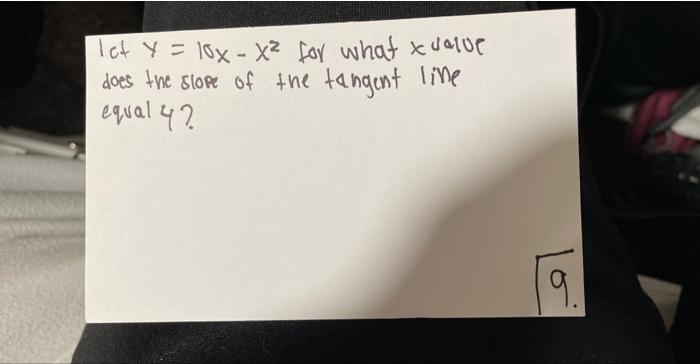 let y = 10x - x² for what x value
does the slope of the tangent line
equal 4?
9.